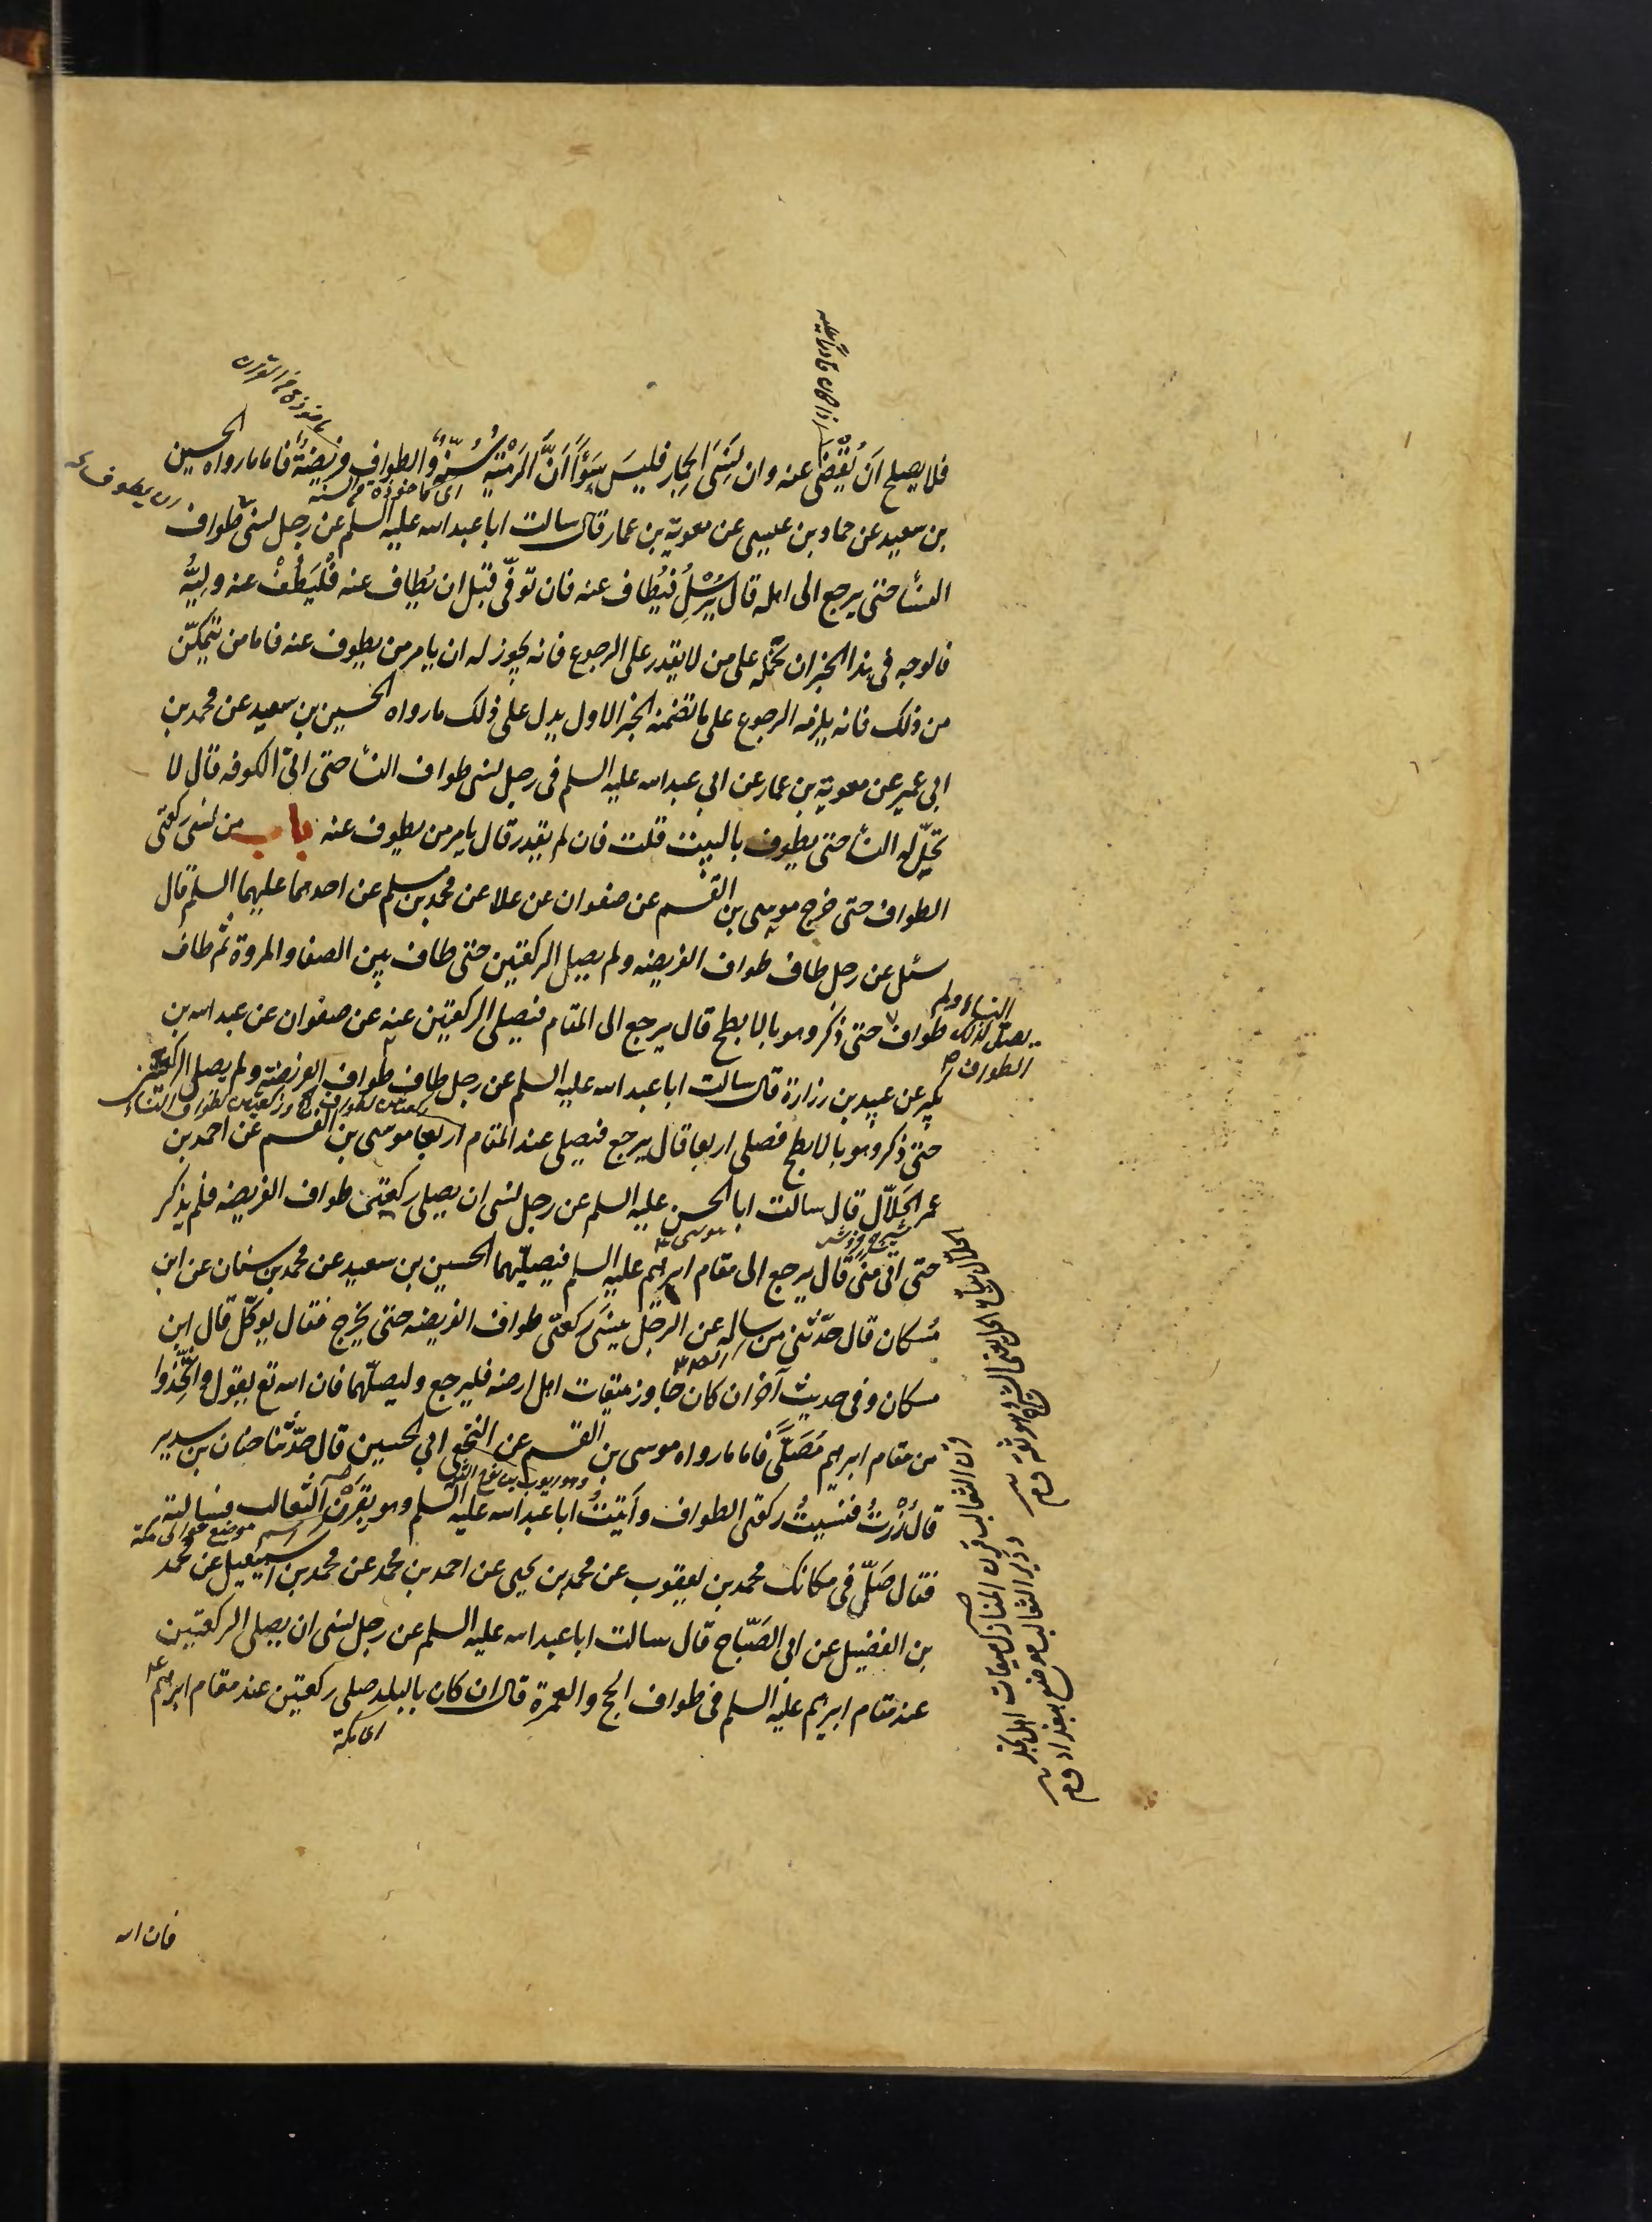 فلا يصلح اَن يُقْضٰى عنه وان نَسِىَ الجِمار فليسَ بِسَوَاٍّ اَنَّ الرَمْىَ سُنَّةٌ والطواف فريضةٌ فاما ما رواه الحسين
بن سعيد عن حماد بن عيسى عن معوية بن عمار قال سالت ابا عبد الله عليه السلم عن رجل نسى طواف
النسآ حتى يرجع الى اهله قال يُرْسِلُ فيُطاف عنه فان توفّى قبل ان يُطاف عنه فلْيَطُفْ عنه وليُّه
فالوجه فى هذا الخبر ان نحمله على من لا يقدر على الرجوع فانه يجوز له ان يامر من يطوف عنه فاما من يتمكّن
من ذلك فانه يلزمه الرجوع على ما تضمنه الخبر الاول يدل على ذلك ما رواه الحسين بن سعيد عن محمد بن
ابى عمير عن معوية بن عمار عن ابى عبد الله عليه السلم فى رجل نسى طواف النسآ حتى اتى الكوفه قال لا
تحِلّ له النسآ حتى يطوف بالبيت قلت فان لم يقدر قال يامر من يطوف عنه باب من نسى ركعتى
الطواف حتى خرج موسى بن القسم عن صفوان عن علا عن محمد بن مسلم عن احدهما عليهما السلم قال
سئل عن رجل طاف طواف الفريضه ولم يصل الركعتين حتى طاف بين الصفا والمروة ثم طاف
طواف حتى ذكر وهو بالابطح قال يرجع الى المقام فيصلى الركعتين عنه عن صفوان عن عبد الله بن
النساء ولم
يصل لذلك
الطواف
بكير عن عبيد بن زرارة قال سالت ابا عبد الله عليه السلم عن رجل طاف طواف الفريضة ولم يصل الركعتين
حتى ذكر وهو بالابطح فصلى اربعا قال يرجع فيصلى عند المقام اربعا موسى بن القسم عن احمد بن
عمر الحَلاّل قال سالت ابا الحسن عليه السلم عن رجل نسى ان يصلى ركعتى طواف الفريضه فلم يذكر
حتى اتى منى قال يرجع الى مقام ابرهيم عليه السلم فيصلّيهما الحسين بن سعيد عن محمد بن سنان عن ابن
مُسكان قال حدّثنى من ساله عن الرجل ينسَى ركعتى طواف الفريضه حتى يخرج فقال يوكّل قال ابن
مسكان وفى حديث آخر ان كان جاوز ميقات اهل ارضه فليرجع وليصلّهما فان الله تع يقول واتَّخِذُوا
من مقام ابرهيم مُصَلًّى فاما ما رواه موسى بن القسم عن النخعى ابى الحسين قال حدّثنا حنان بن سدير
قال زُرْتُ فنسيتُ ركعتى الطواف وأتيتُ ابا عبد الله عليه السلم وهو بقَرْن الثعالب فسالته
فقال صَلِّ فى مكانك محمد بن يعقوب عن محمد بن يحيى عن احمد بن محمد عن محمد بن اسمعيل عن محمد
بن الفضيل عن ابى الصَبّاح قال سالت ابا عبد الله عليه السلم عن رجل نسى ان يصلى الركعتين
عند مقام ابرهيم عليه السلم فى طواف الحج والعمرة قال ان كان بالبلد صلى ركعتين عند مقام ابرهيم
اى بمكة
فان الله